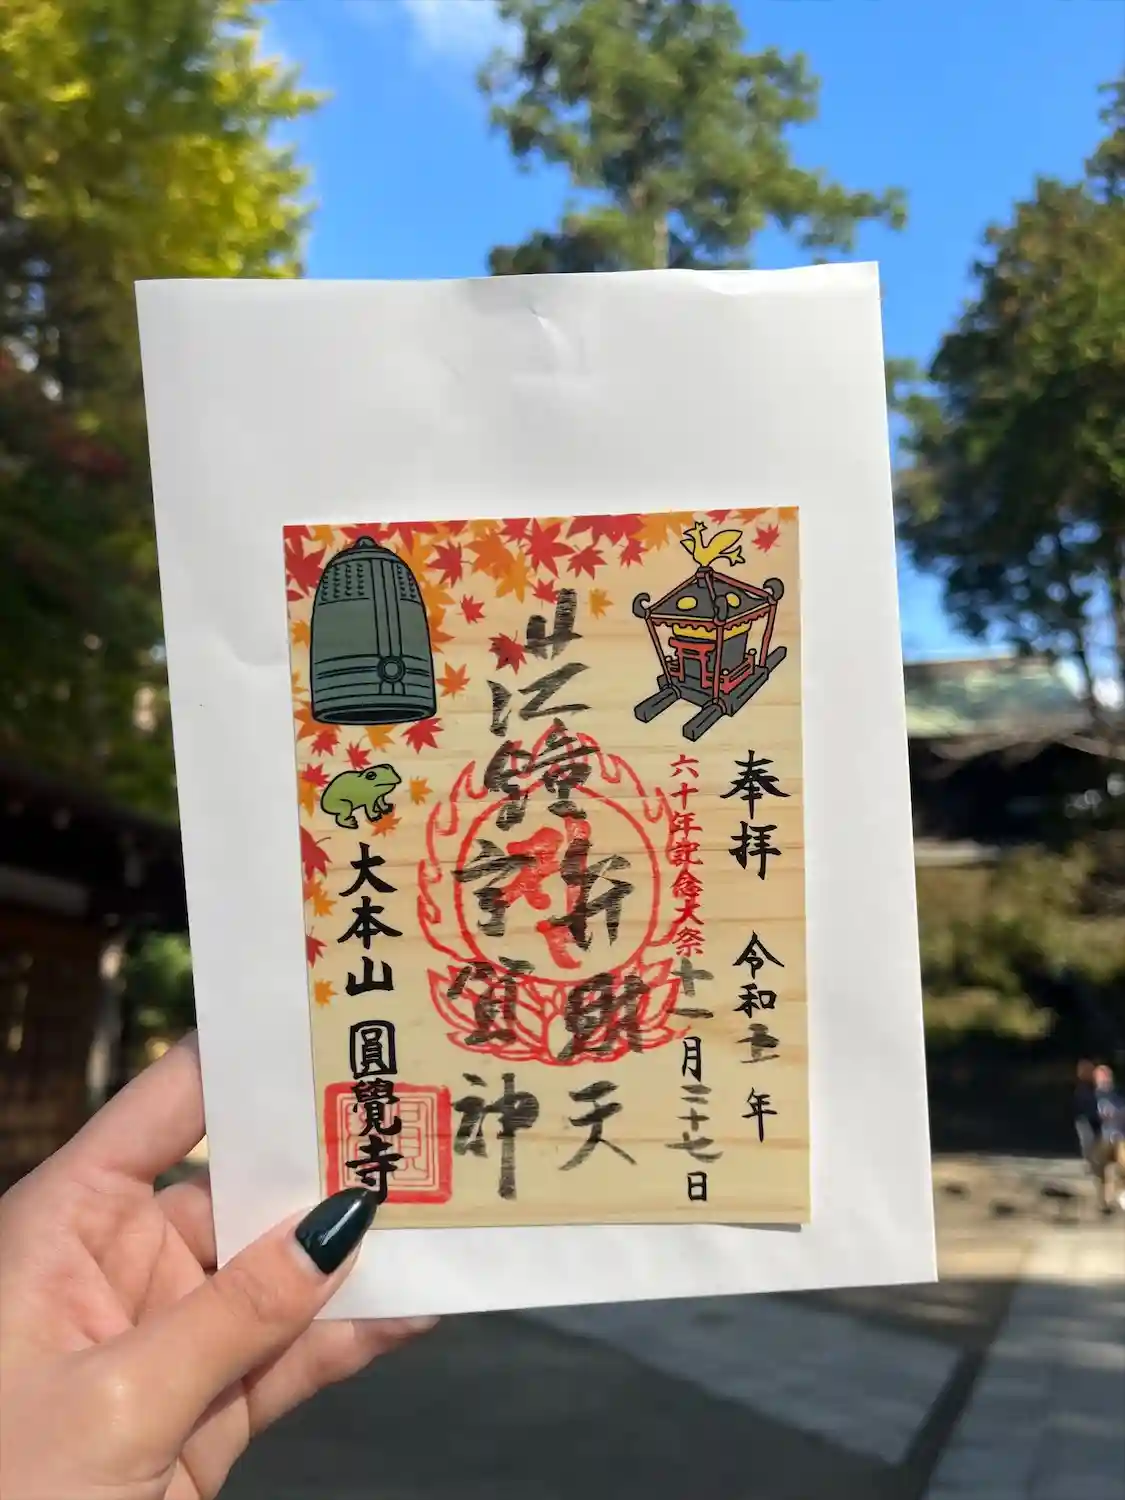 奉拝 令和五年
六十年記念大祭
十一月二十七日
洪鐘
弁財天
宇賀神
大本山 圓覺寺